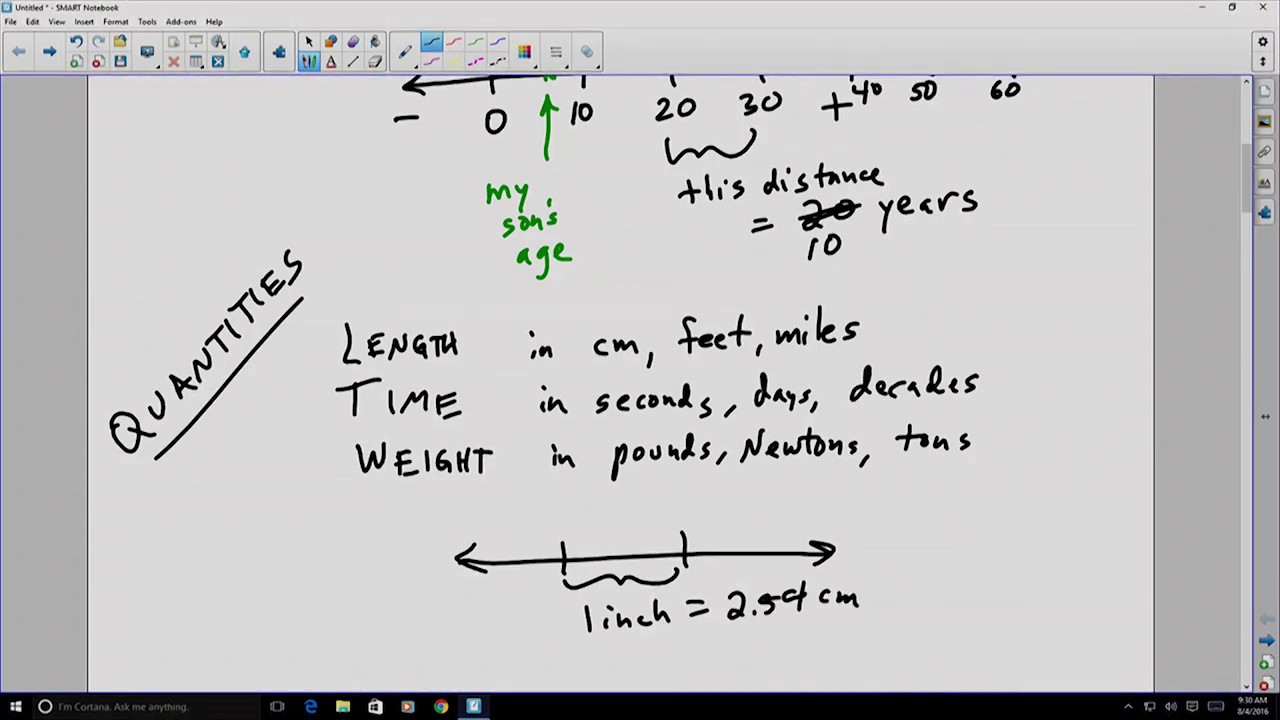 Untitled * - SMART Notebook
File Edit View Insert Format Tools Add-ons Help
- 0 10 20 30 + 40 50 60
my son's age
this distance
= 20 years
10
QUANTITIES
LENGTH in cm, feet, miles
TIME in seconds, days, decades
WEIGHT in pounds, Newtons, tons
1 inch = 2.54 cm
I'm Cortana. Ask me anything.
9:30 AM
8/4/2016